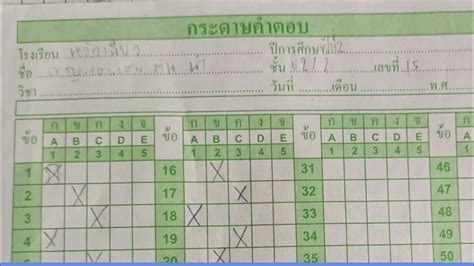 กระดาษคำตอบ
โรงเรียน ปีการศึกษา
ชื่อ ชั้น ป.2/2 เลขที่ 15
วิชา วันที่ เดือน พ.ศ
ข้อ ก ข ค ง จ ข้อ ก ข ค ง จ ข้อ ก ข ค ง จ ข้อ
A B C D E A B C D E A B C D E
1 2 3 4 5 1 2 3 4 5 1 2 3 4 5
1 X 16 X 31 46
2 X 17 X 32 47
3 X 18 X 33 48
4 X 19 X 34 49
5 X 20 X 35 50